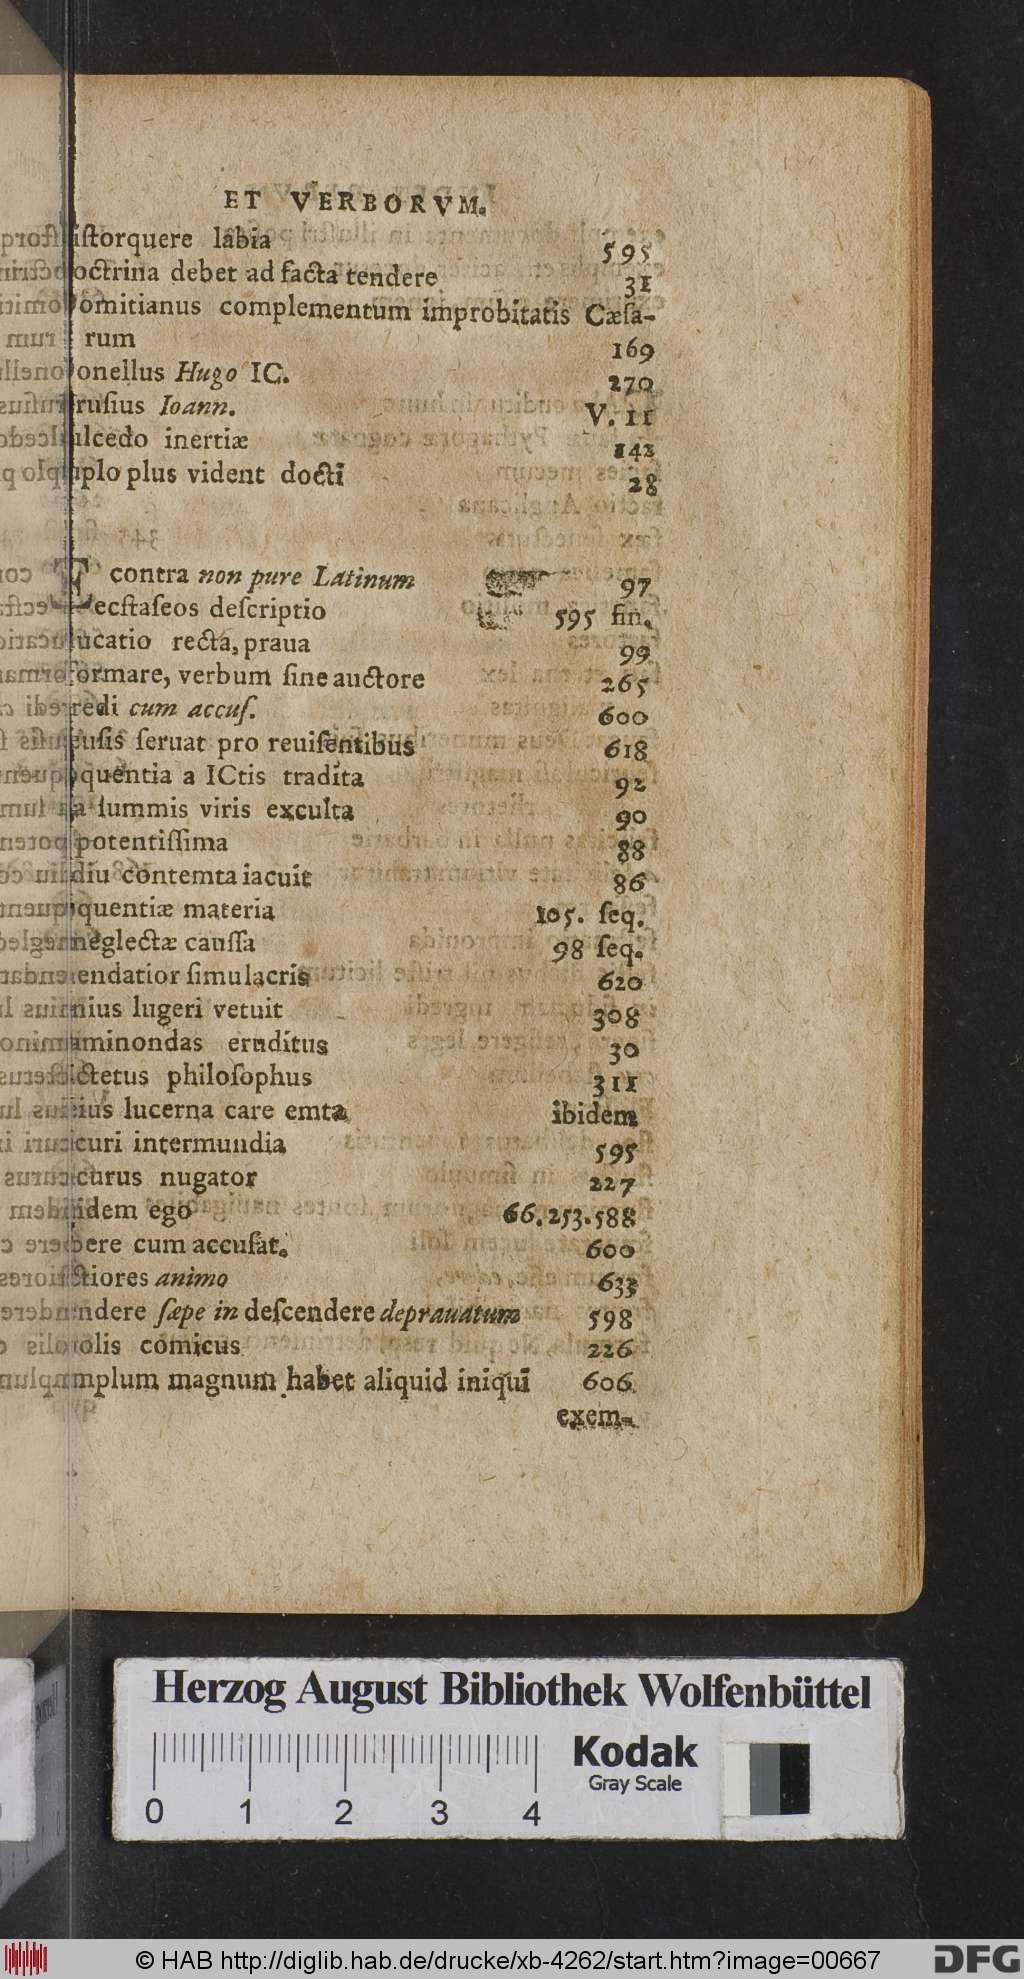 ET VERBORVM.
iſtorquere labia 595
octrina debet ad facta tendere 31
omitianus complementum improbitatis Cæſa-
rum 169
onellus Hugo IC. 270
ruſius Ioann. V. 11
ulcedo inertiæ 142
uplo plus vident docti 28
E contra non pure Latinum 97
ecſtaſeos deſcriptio 595 fin.
ucatio recta, praua 99
formare, verbum ſine auctore 265
redi cum accuſ. 600
euſis ſeruat pro reuiſentibus 618
quentia a ICtis tradita 92
a ſummis viris exculta 90
potentiſſima 88
diu contemta iacuit 86
quentiæ materia 105. ſeq.
neglectæ cauſſa 98 ſeq.
endatior ſimulacris 620
nius lugeri vetuit 308
aminondas eruditus 30
ictetus philoſophus 311
ius lucerna care emta ibidem
icuri intermundia 595
icurus nugator 227
idem ego 66.253.588
bere cum accuſat. 600
ctiores animo 633
ndere ſæpe in deſcendere deprauatum 598
olis comicus 226
mplum magnum habet aliquid iniqui 606
exem-
Herzog August Bibliothek Wolfenbüttel
Kodak
Gray Scale
0 1 2 3 4
© HAB http://diglib.hab.de/drucke/xb-4262/start.htm?image=00667
DFG